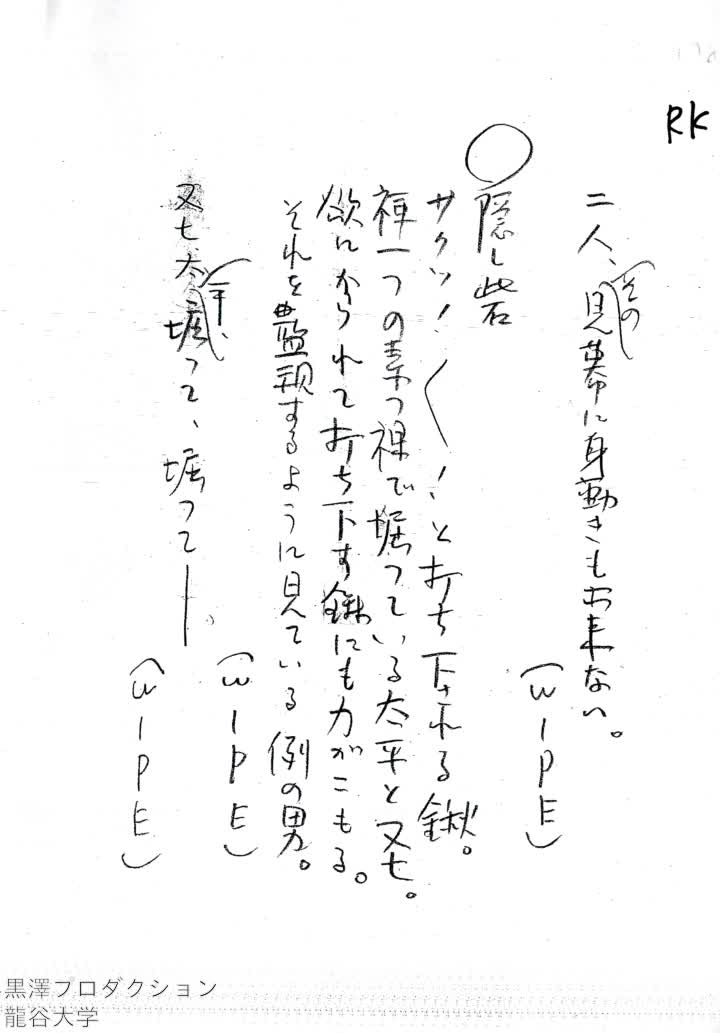 RK
二人、その見幕に身動きもお来ない。
(WIPE)
○隠し砦
サクッ！〱！と打ち下される鍬。
褌一つの素っ裸で掘っている太平と又七。
欲にかられて打ち下す鍬にも力がこもる。
それを監視するように見ている例の男。
(WIPE)
又七、太平、掘って、掘って——。
(WIPE)
黒澤プロダクション
龍谷大学